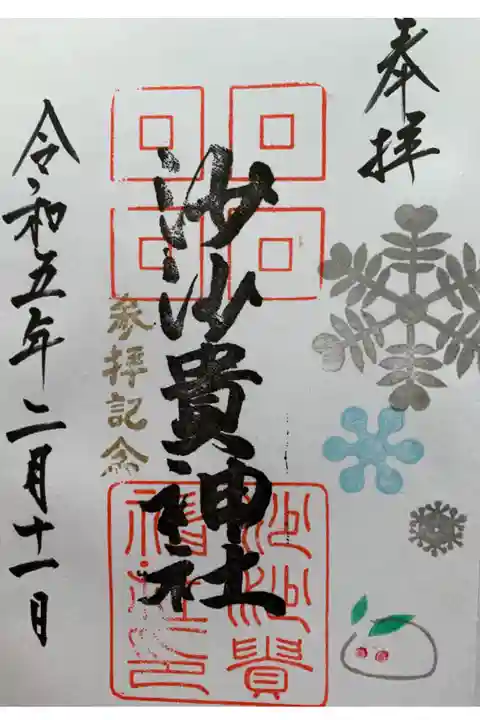 奉拝
沙沙貴神社
沙沙貴
神社印
参拝記念
令和五年二月十一日